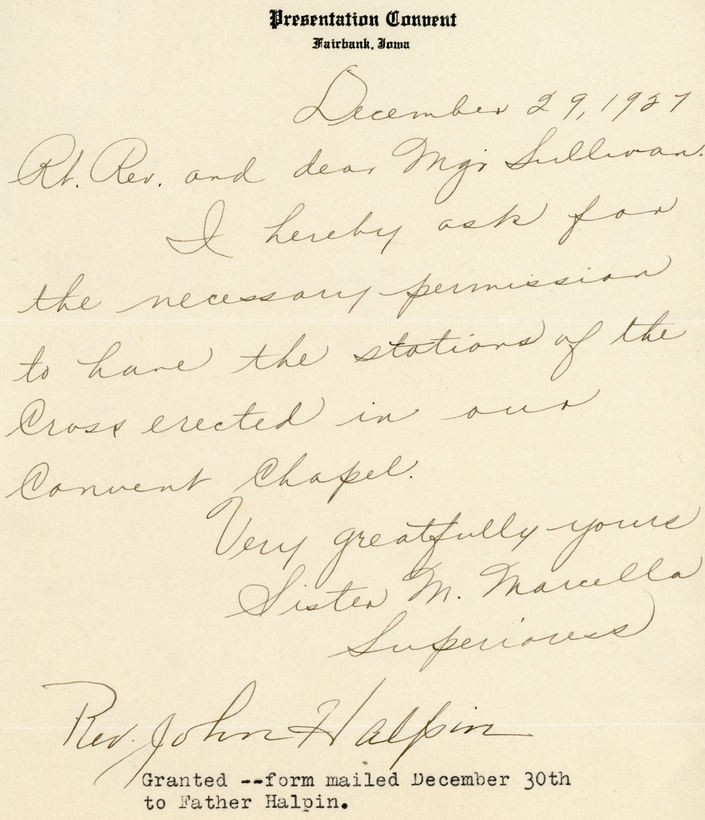 Presentation Convent
Fairbank, Iowa
December 29, 1927
Rt. Rev. and dear Mgr Sullivan.
I hereby ask for
the necessary permission
to have the stations of the
Cross erected in our
Convent Chapel.
Very greatfully yours
Sister M. Marcella
Superioress
Rev. John Halpin
Granted --form mailed December 30th
to Father Halpin.